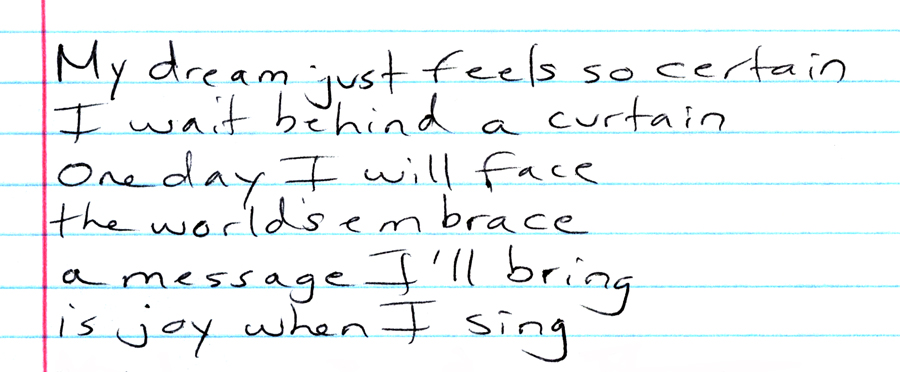 My dream just feels so certain
I wait behind a curtain
One day I will face
the world's embrace
a message I'll bring
is joy when I sing